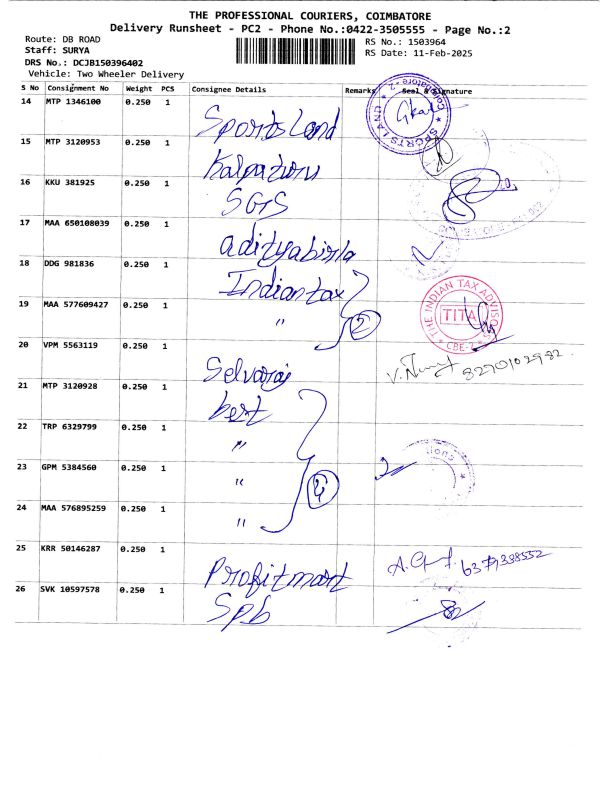 THE PROFESSIONAL COURIERS, COIMBATORE
Delivery Runsheet - PC2 - Phone No.:0422-3505555 - Page No.:2
Route: DB ROAD
RS No.: 1503964
Staff: SURYA
RS Date: 11-Feb-2025
DRS No.: DCJB150396402
Vehicle: Two Wheeler Delivery
S No Consignment No Weight PCS Consignee Details Remarks Seal & Signature
14 MTP 1346100 0.250 1 Sports Land
SPORTS LAND Coimbatore - 2
15 MTP 3120953 0.250 1 Kalpatharu
16 KKU 381925 0.250 1 SGS
17 MAA 650108039 0.250 1 adityabirla
18 DDG 981836 0.250 1 Indiantax
19 MAA 577609427 0.250 1 " 2
THE INDIAN TAX ADVISORS TITA CBE-2
20 VPM 5563119 0.250 1 Selvaraj 3270102982
21 MTP 3120928 0.250 1 best
22 TRP 6329799 0.250 1 "
23 GPM 5384560 0.250 1 " 4
24 MAA 576895259 0.250 1 "
25 KRR 50146287 0.250 1 Profitmart
26 SVK 10597578 0.250 1 Spb